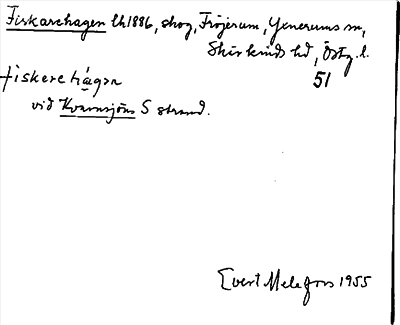 Fiskarehagen lh 1886, skog, Fröjerum, Yxnerums sn,
Skärkinds hd, Östg. l.
51
fiskerehägen
vid Kvarnsjöns S strand.
Evert Melefors 1955